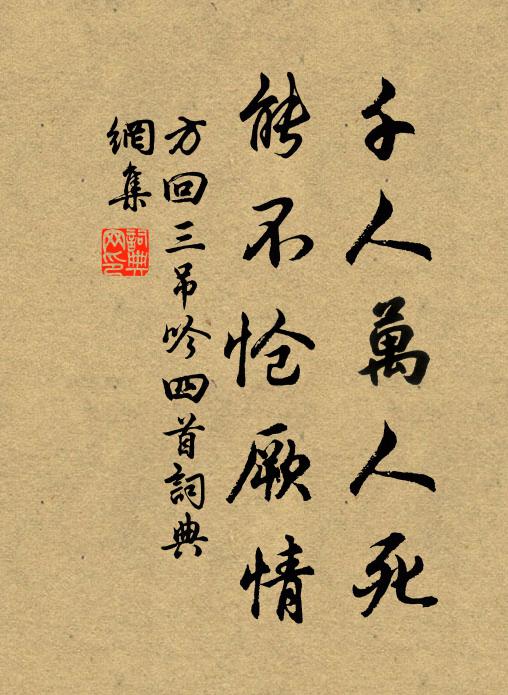 千人萬人死
能不怆厥情
方回三吊吟四首詞典
網集
詞典网印